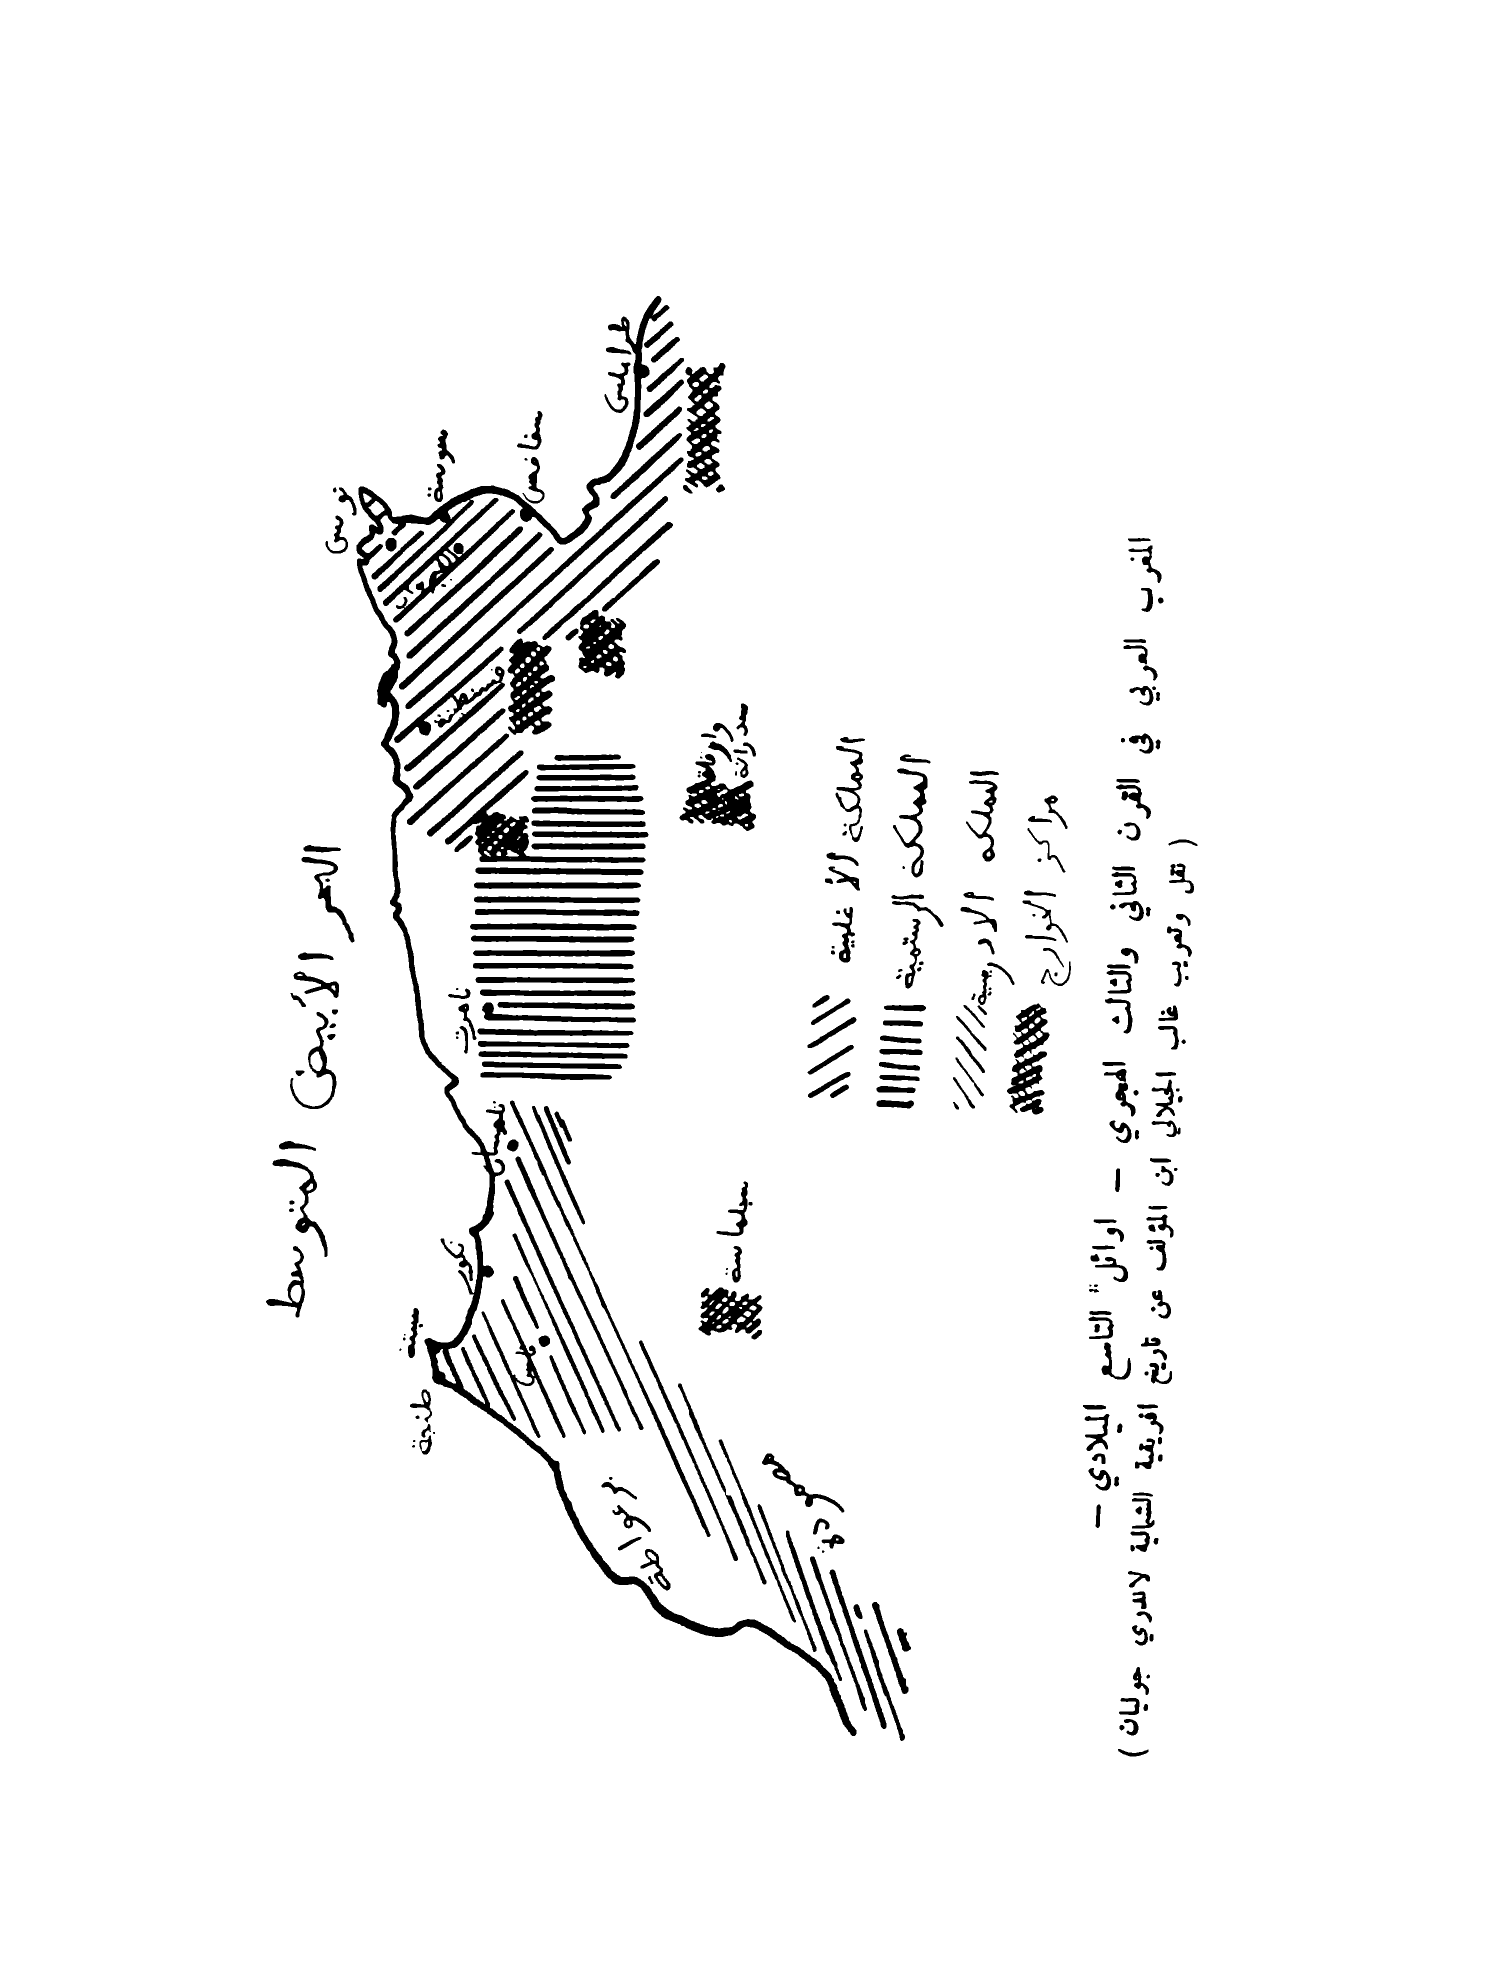 البحر الأبيض المتوسط
تونس
سوسة
سفاقس
طرابلس
القيروان
قسنطينة
تاهرت
تلمسان
نكور
سبتة
طنجة
فاس
سجلماسة
سدراتة
المملكة الأغلبية
المملكة الرستمية
المملكه الادريسية
مراكز الخوارج
المغرب العربي في القرن الثاني والثالث الهجري – اوائل التاسع الميلادي –
( نقل وتعريب غالب الجيلالي ابن المؤلف عن تاريخ افريقية الشمالية لاندري جوليان )